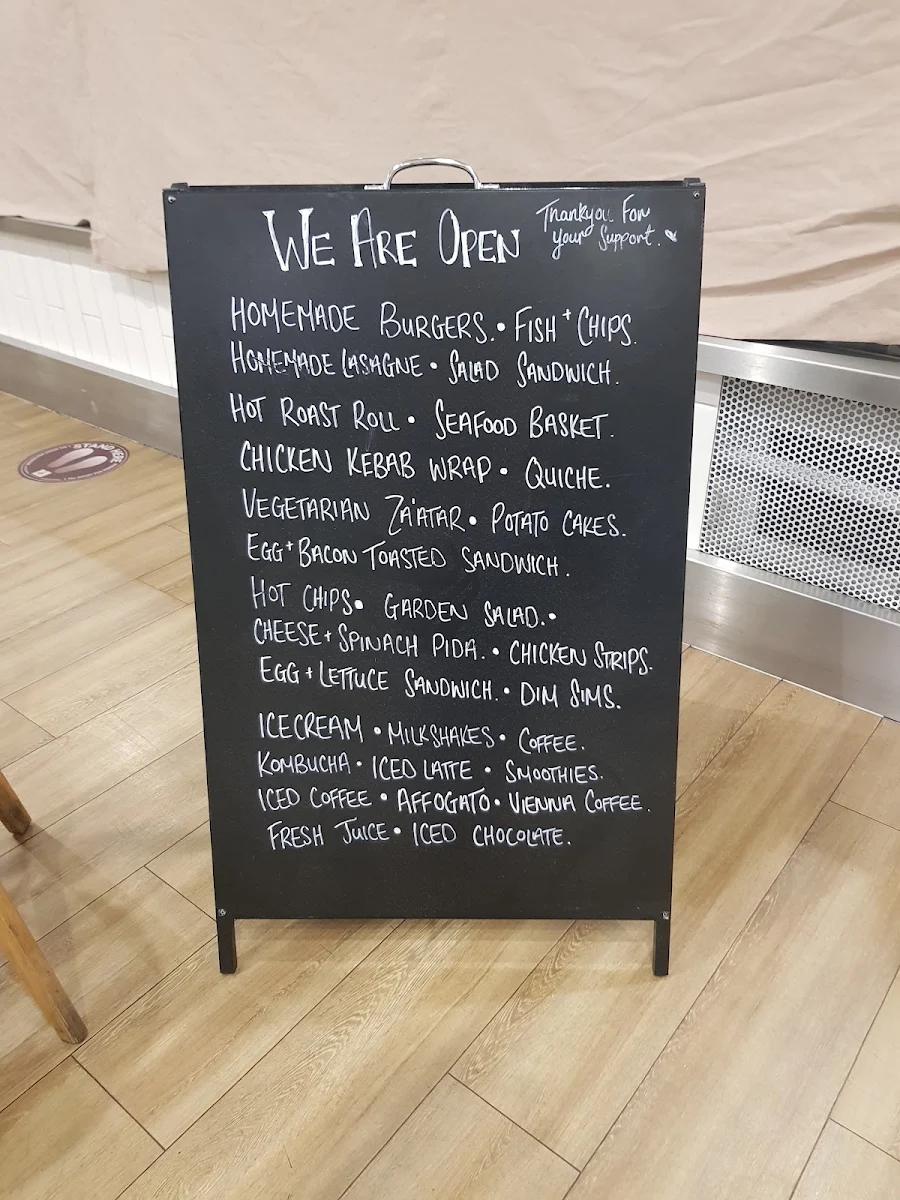 WE ARE OPEN
Thankyou For
your Support.
HOMEMADE BURGERS. • FISH + CHIPS.
HOMEMADE LASAGNE • SALAD SANDWICH.
HOT ROAST ROLL • SEAFOOD BASKET.
CHICKEN KEBAB WRAP • QUICHE.
VEGETARIAN ZA'ATAR • POTATO CAKES.
EGG + BACON TOASTED SANDWICH.
HOT CHIPS • GARDEN SALAD. •
CHEESE + SPINACH PIDA. • CHICKEN STRIPS.
EGG + LETTUCE SANDWICH. • DIM SIMS.
ICECREAM • MILKSHAKES • COFFEE.
KOMBUCHA • ICED LATTE • SMOOTHIES.
ICED COFFEE • AFFOGATO • VIENNA COFFEE.
FRESH JUICE • ICED CHOCOLATE.
STAND HERE